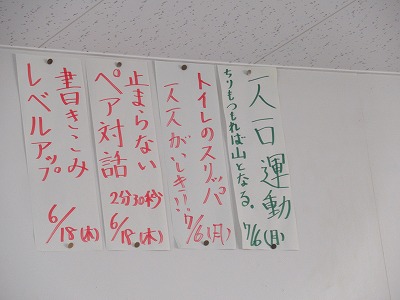 一人一口運動
ちりもつもれば山となる。
7/6(月)
トイレのスリッパ
一人一人がいしき!!
7/6(月)
止まらない
ペア対話
2分30秒
6/18(木)
書きこみ
レベルアップ
6/18(木)